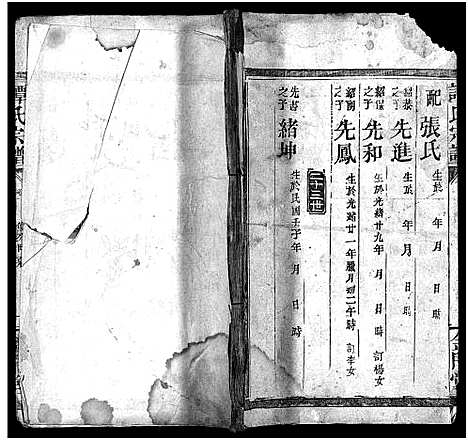 譚氏宗譜
配張氏 生於 年 月 日 時
紹恭之子 先進 生於 年 月 日 時
之子 先和 生於光緒廿九年 月 日 時 訂楊女
紹南之子 先鳳 生於光緒廿一年臘月初二午時 訂李女
二十三世
先吉之子 緒坤 生於民國壬子年 月 日 時
譚氏宗譜